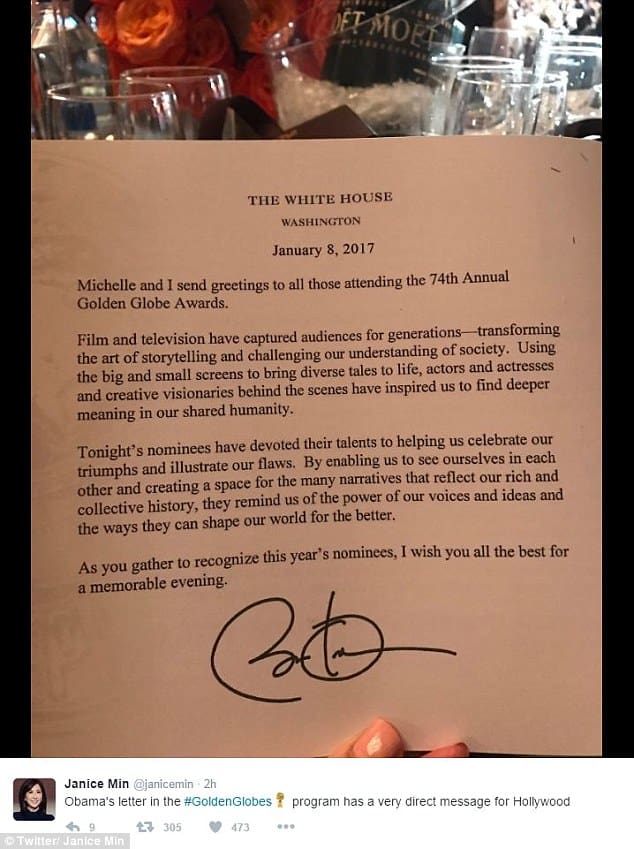 ET MOET
THE WHITE HOUSE
WASHINGTON
January 8, 2017
Michelle and I send greetings to all those attending the 74th Annual
Golden Globe Awards.
Film and television have captured audiences for generations—transforming
the art of storytelling and challenging our understanding of society. Using
the big and small screens to bring diverse tales to life, actors and actresses
and creative visionaries behind the scenes have inspired us to find deeper
meaning in our shared humanity.
Tonight's nominees have devoted their talents to helping us celebrate our
triumphs and illustrate our flaws. By enabling us to see ourselves in each
other and creating a space for the many narratives that reflect our rich and
collective history, they remind us of the power of our voices and ideas and
the ways they can shape our world for the better.
As you gather to recognize this year's nominees, I wish you all the best for
a memorable evening.
Janice Min @janicemin · 2h
Obama's letter in the #GoldenGlobes program has a very direct message for Hollywood
9 305 473
© Twitter/ Janice Min